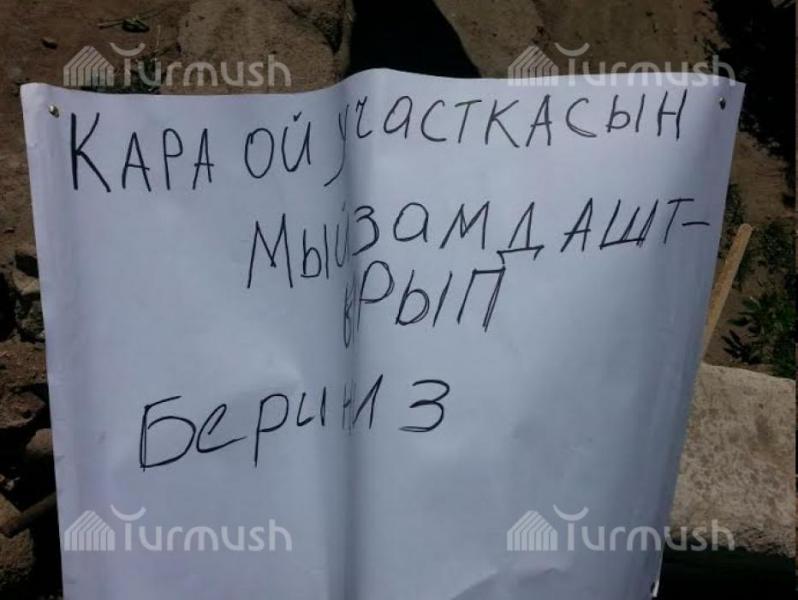 Turmush Turmush
КАРА ОЙ участкасын
Мыйзамдашт-
ырып
Беринiз
Turmush Turmush